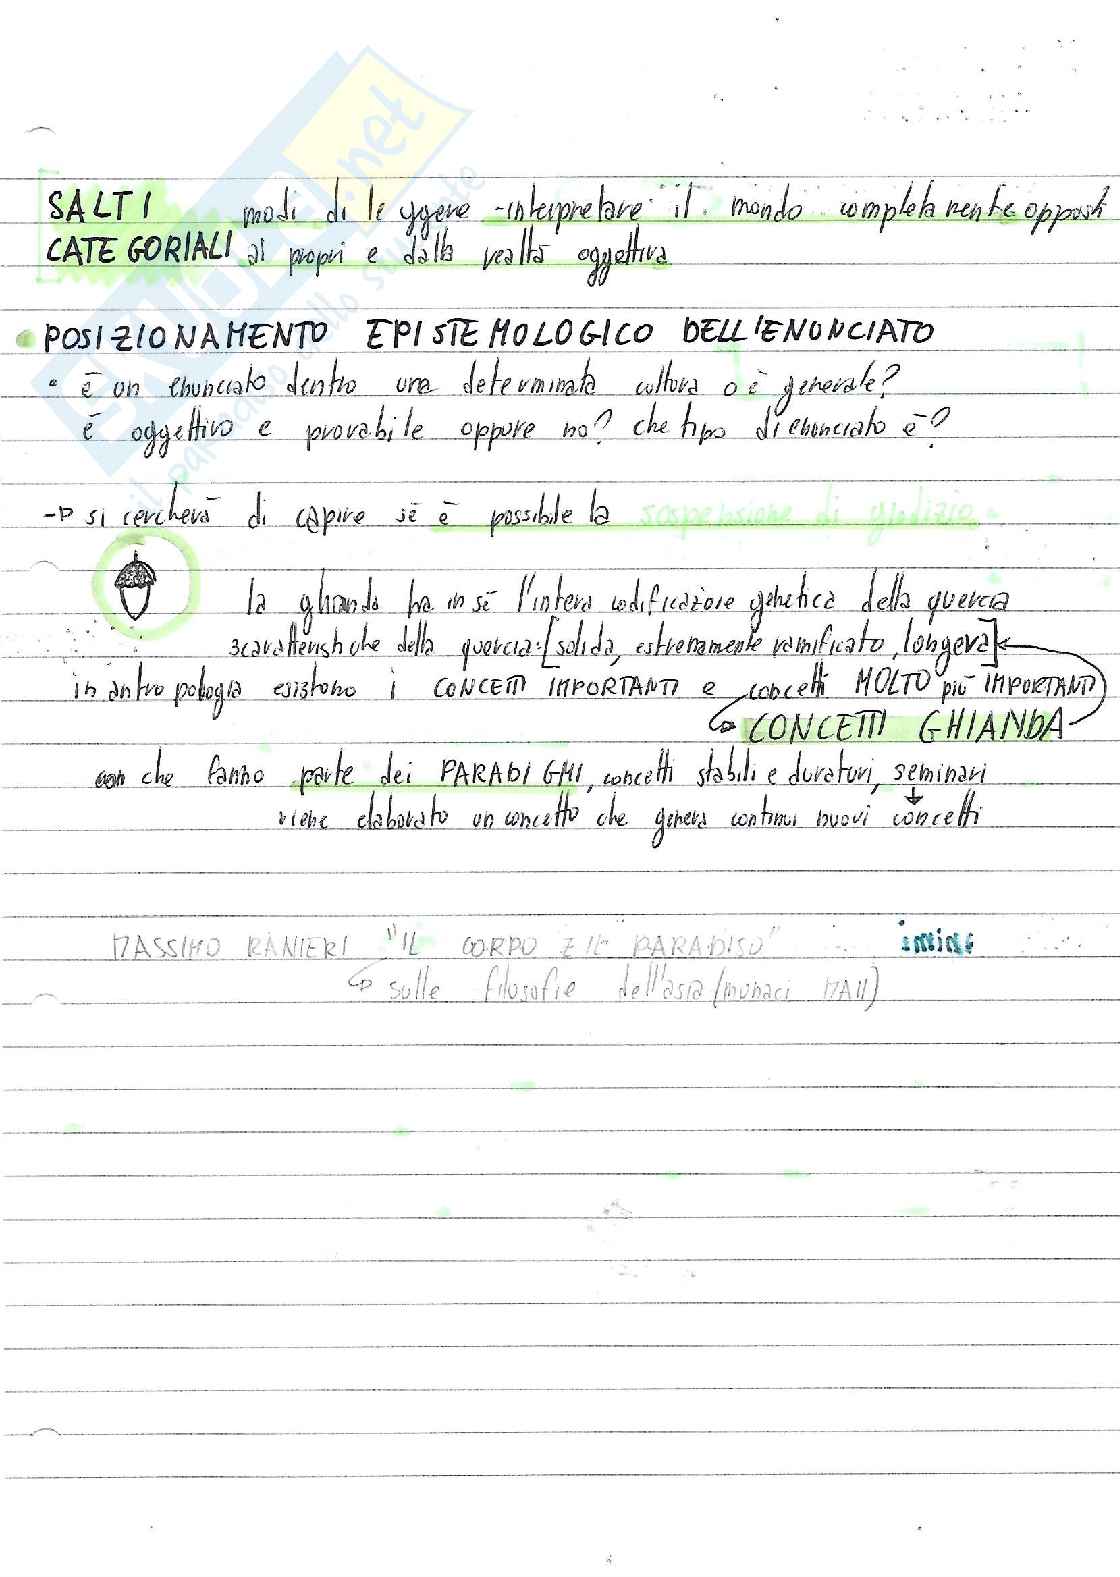 SALTI modi di leggere - interpretare il mondo completamente opposti
CATEGORIALI ai propri e dalla realtà oggettiva
POSIZIONAMENTO EPISTEMOLOGICO DELL'ENUNCIATO
• è un enunciato dentro una determinata cultura o è generale?
è oggettivo e provabile oppure no? che tipo di enunciato è?
-> si cercherà di capire se è possibile la sospensione di giudizio
la ghianda ha in sé l'intera codificazione genetica della quercia
3 caratteristiche della quercia: [solida, estremamente ramificato, longeva]
in antropologia esistono i CONCETTI IMPORTANTI e concetti MOLTO più IMPORTANTI
CONCETTI GHIANDA
che fanno parte dei PARADIGMI, concetti stabili e duraturi, seminari
viene elaborato un concetto che genera continui nuovi concetti
MASSIMO RANIERI "IL CORPO E IL PARADISO"
sulle filosofie dell'asia (monaci
SKUOLA.net
il paradiso dello studente